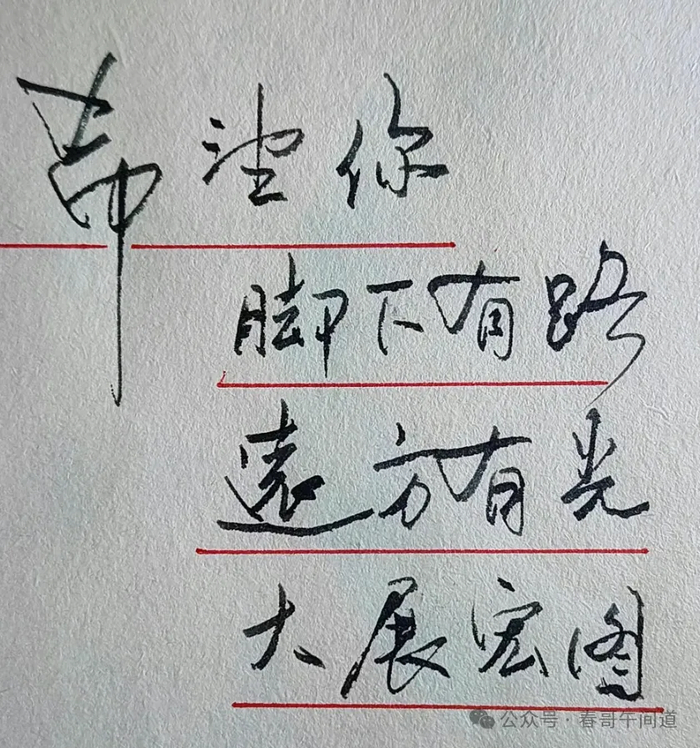 希望你
脚下有路
遠方有光
大展宏图
公众号·春哥午间道